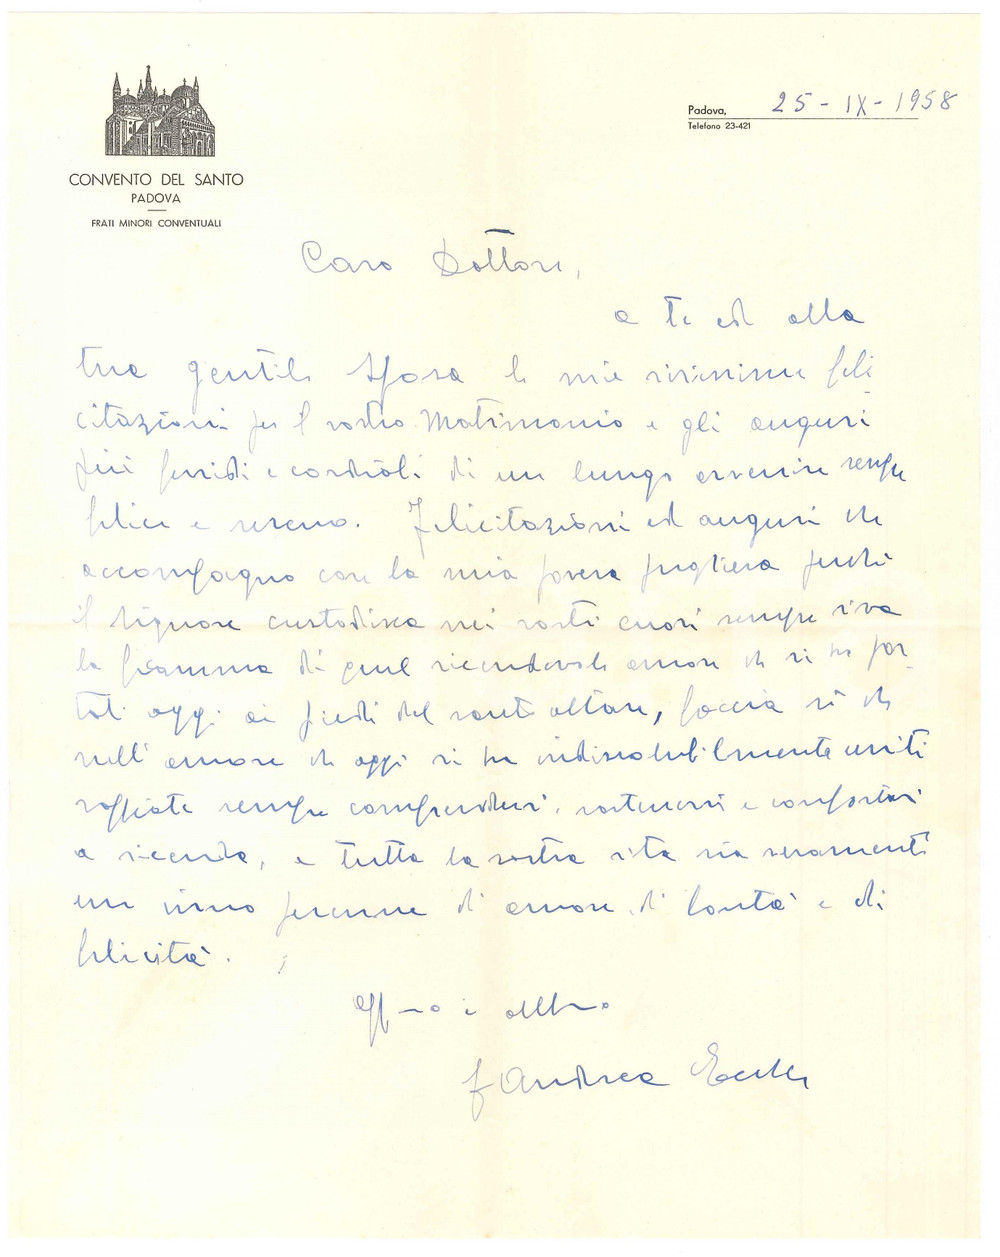 CONVENTO DEL SANTO
PADOVA
FRATI MINORI CONVENTUALI
Padova, 25-IX-1958
Telefono 23-421
Caro Dottore,
a te ed alla
tua gentile Sposa le mie vivissime feli
citazioni per il vostro Matrimonio e gli auguri
più fervidi e cordiali di un lungo avvenire sempre
felice e sereno. Felicitazioni ed auguri che
accompagno con la mia povera preghiera perchè
il Signore custodisca nei vostri cuori sempre viva
la fiamma di quel vicendevole amore che vi ha por-
tati oggi ai piedi del santo altare, faccia sì che
nell'amore che oggi vi ha indissolubilmente uniti
sappiate sempre comprendervi, sostenervi e confortarvi
a vicenda, e tutta la vostra vita sia veramente
un inno perenne di amore, di bontà e di
felicità.
aff-mo e
f Andrea